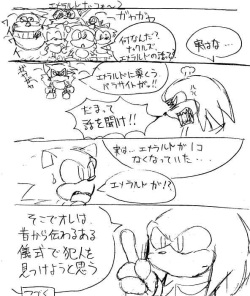 ガヤガヤ
何なんだ?
ナックルズ
エメラルドの話って
実はな…
エメラルドに巣くう
パラサイトがっ!!
だまって
話を聞け!!
実は… エメラルドが1コ
なくなっていた…
エメラルドが!?
そこでオレは、
昔から伝わるある
儀式で犯人を
見つけようと思う
つづく